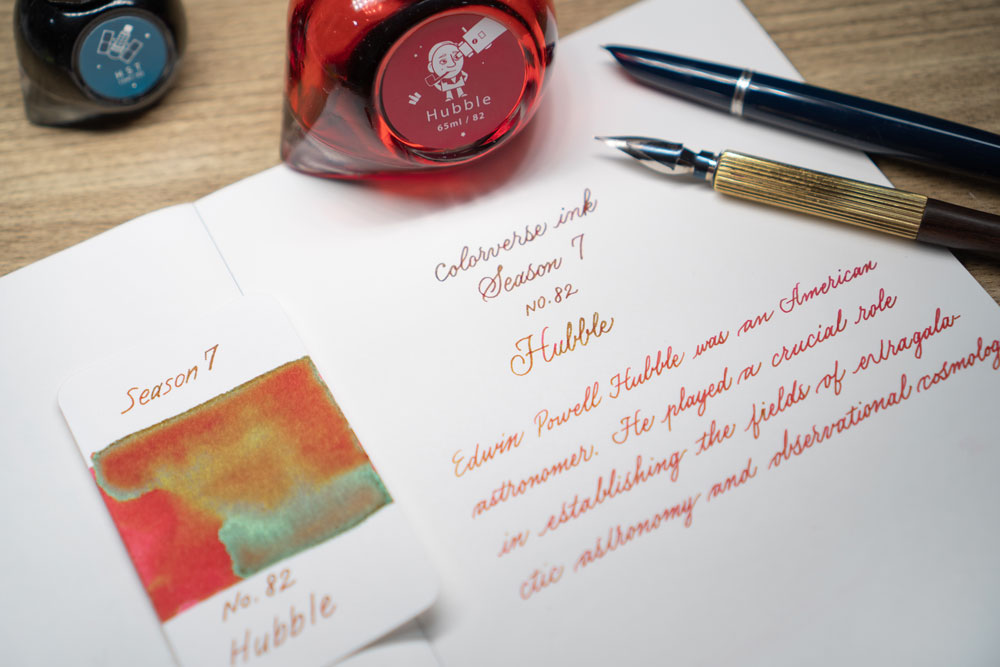 H.S.T
Hubble
65ml / 82
Colorverse ink
Season 7
NO. 82
Hubble
Edwin Powell Hubble was an American
astronomer. He played a crucial role
in establishing the fields of extragala-
ctic astronomy and observational cosmolog
Season 7
No. 82
Hubble